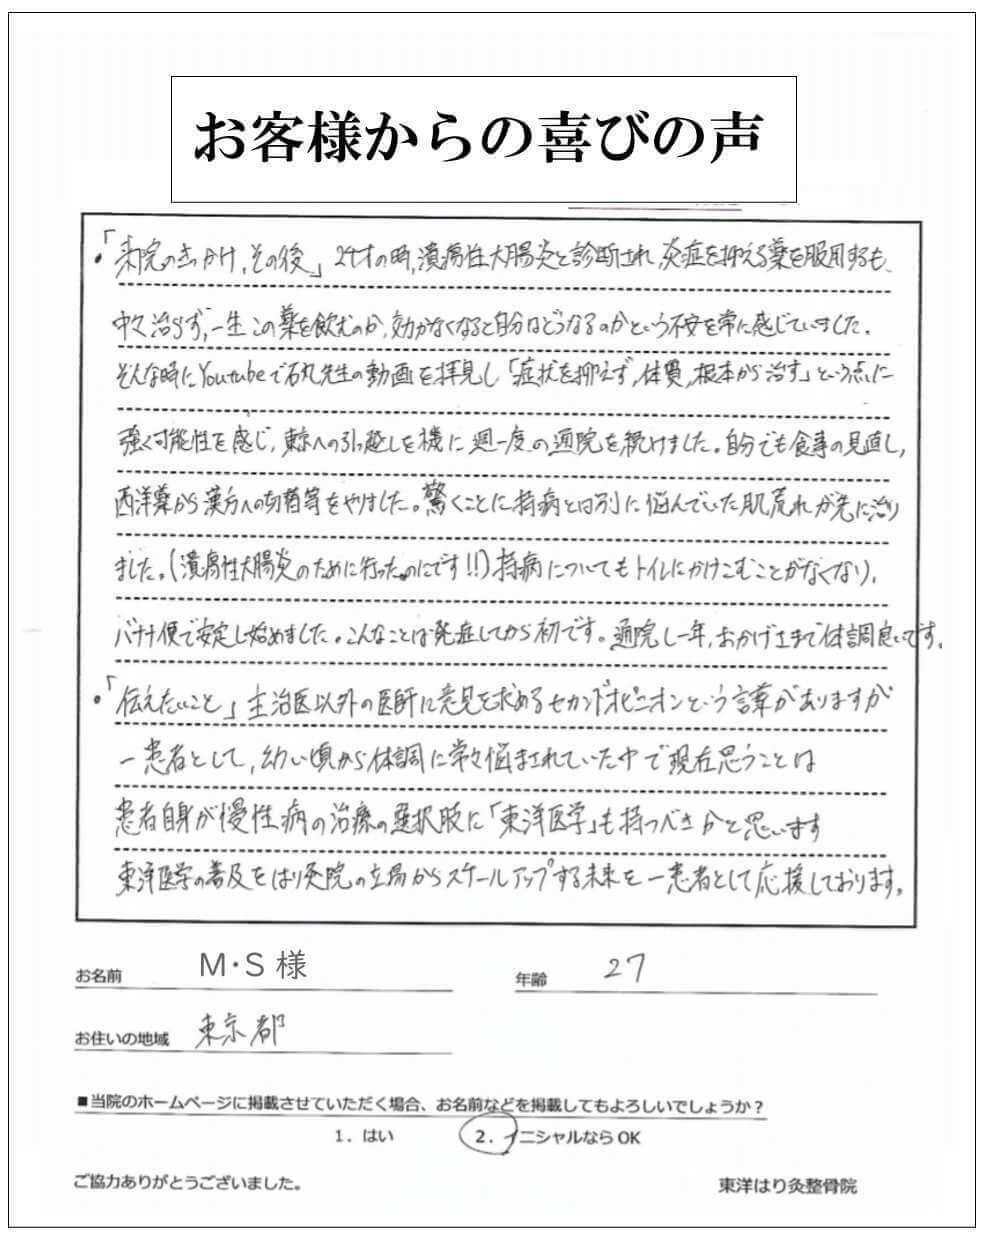 お客様からの喜びの声
・「来院のきっかけ,その後」 24才の時,潰瘍性大腸炎と診断され,炎症を抑える薬を服用するも、
中々治らず,一生この薬を飲むのか,効かなくなると自分はどうなるのかという不安を常に感じていました。
そんな時にYoutubeで石丸先生の動画を拝見し「症状を抑えず,体質,根本から治す」という点に
強く可能性を感じ,東京への引っ越しを機に週一度の通院を続けました。自分でも食事の見直し,
西洋薬から漢方への切替等をやりました。驚くことに持病とは別に悩んでいた肌荒れが先に治り
ました。(潰瘍性大腸炎のために行ったのにです!!)持病についてもトイレにかけこむことがなくなり,
バナナ便で安定し始めました。こんなことは発症してから初です。通院し一年,おかげさまで体調良いです。
・「伝えたいこと」主治医以外の医師に意見を求めるセカンドオピニオンという言葉がありますが
一患者として,幼い頃から体調に常々悩まされていた中で現在思うことは
患者自身が慢性病の治療の選択肢に「東洋医学」も持つべきかと思います
東洋医学の普及をはり灸院の立場からスケールアップする未来を一患者として応援しております。
お名前 M・S 様 年齢 27
お住いの地域 東京都
■当院のホームページに掲載させていただく場合、お名前などを掲載してもよろしいでしょうか?
1．はい 2．イニシャルならOK
ご協力ありがとうございました。 東洋はり灸整骨院